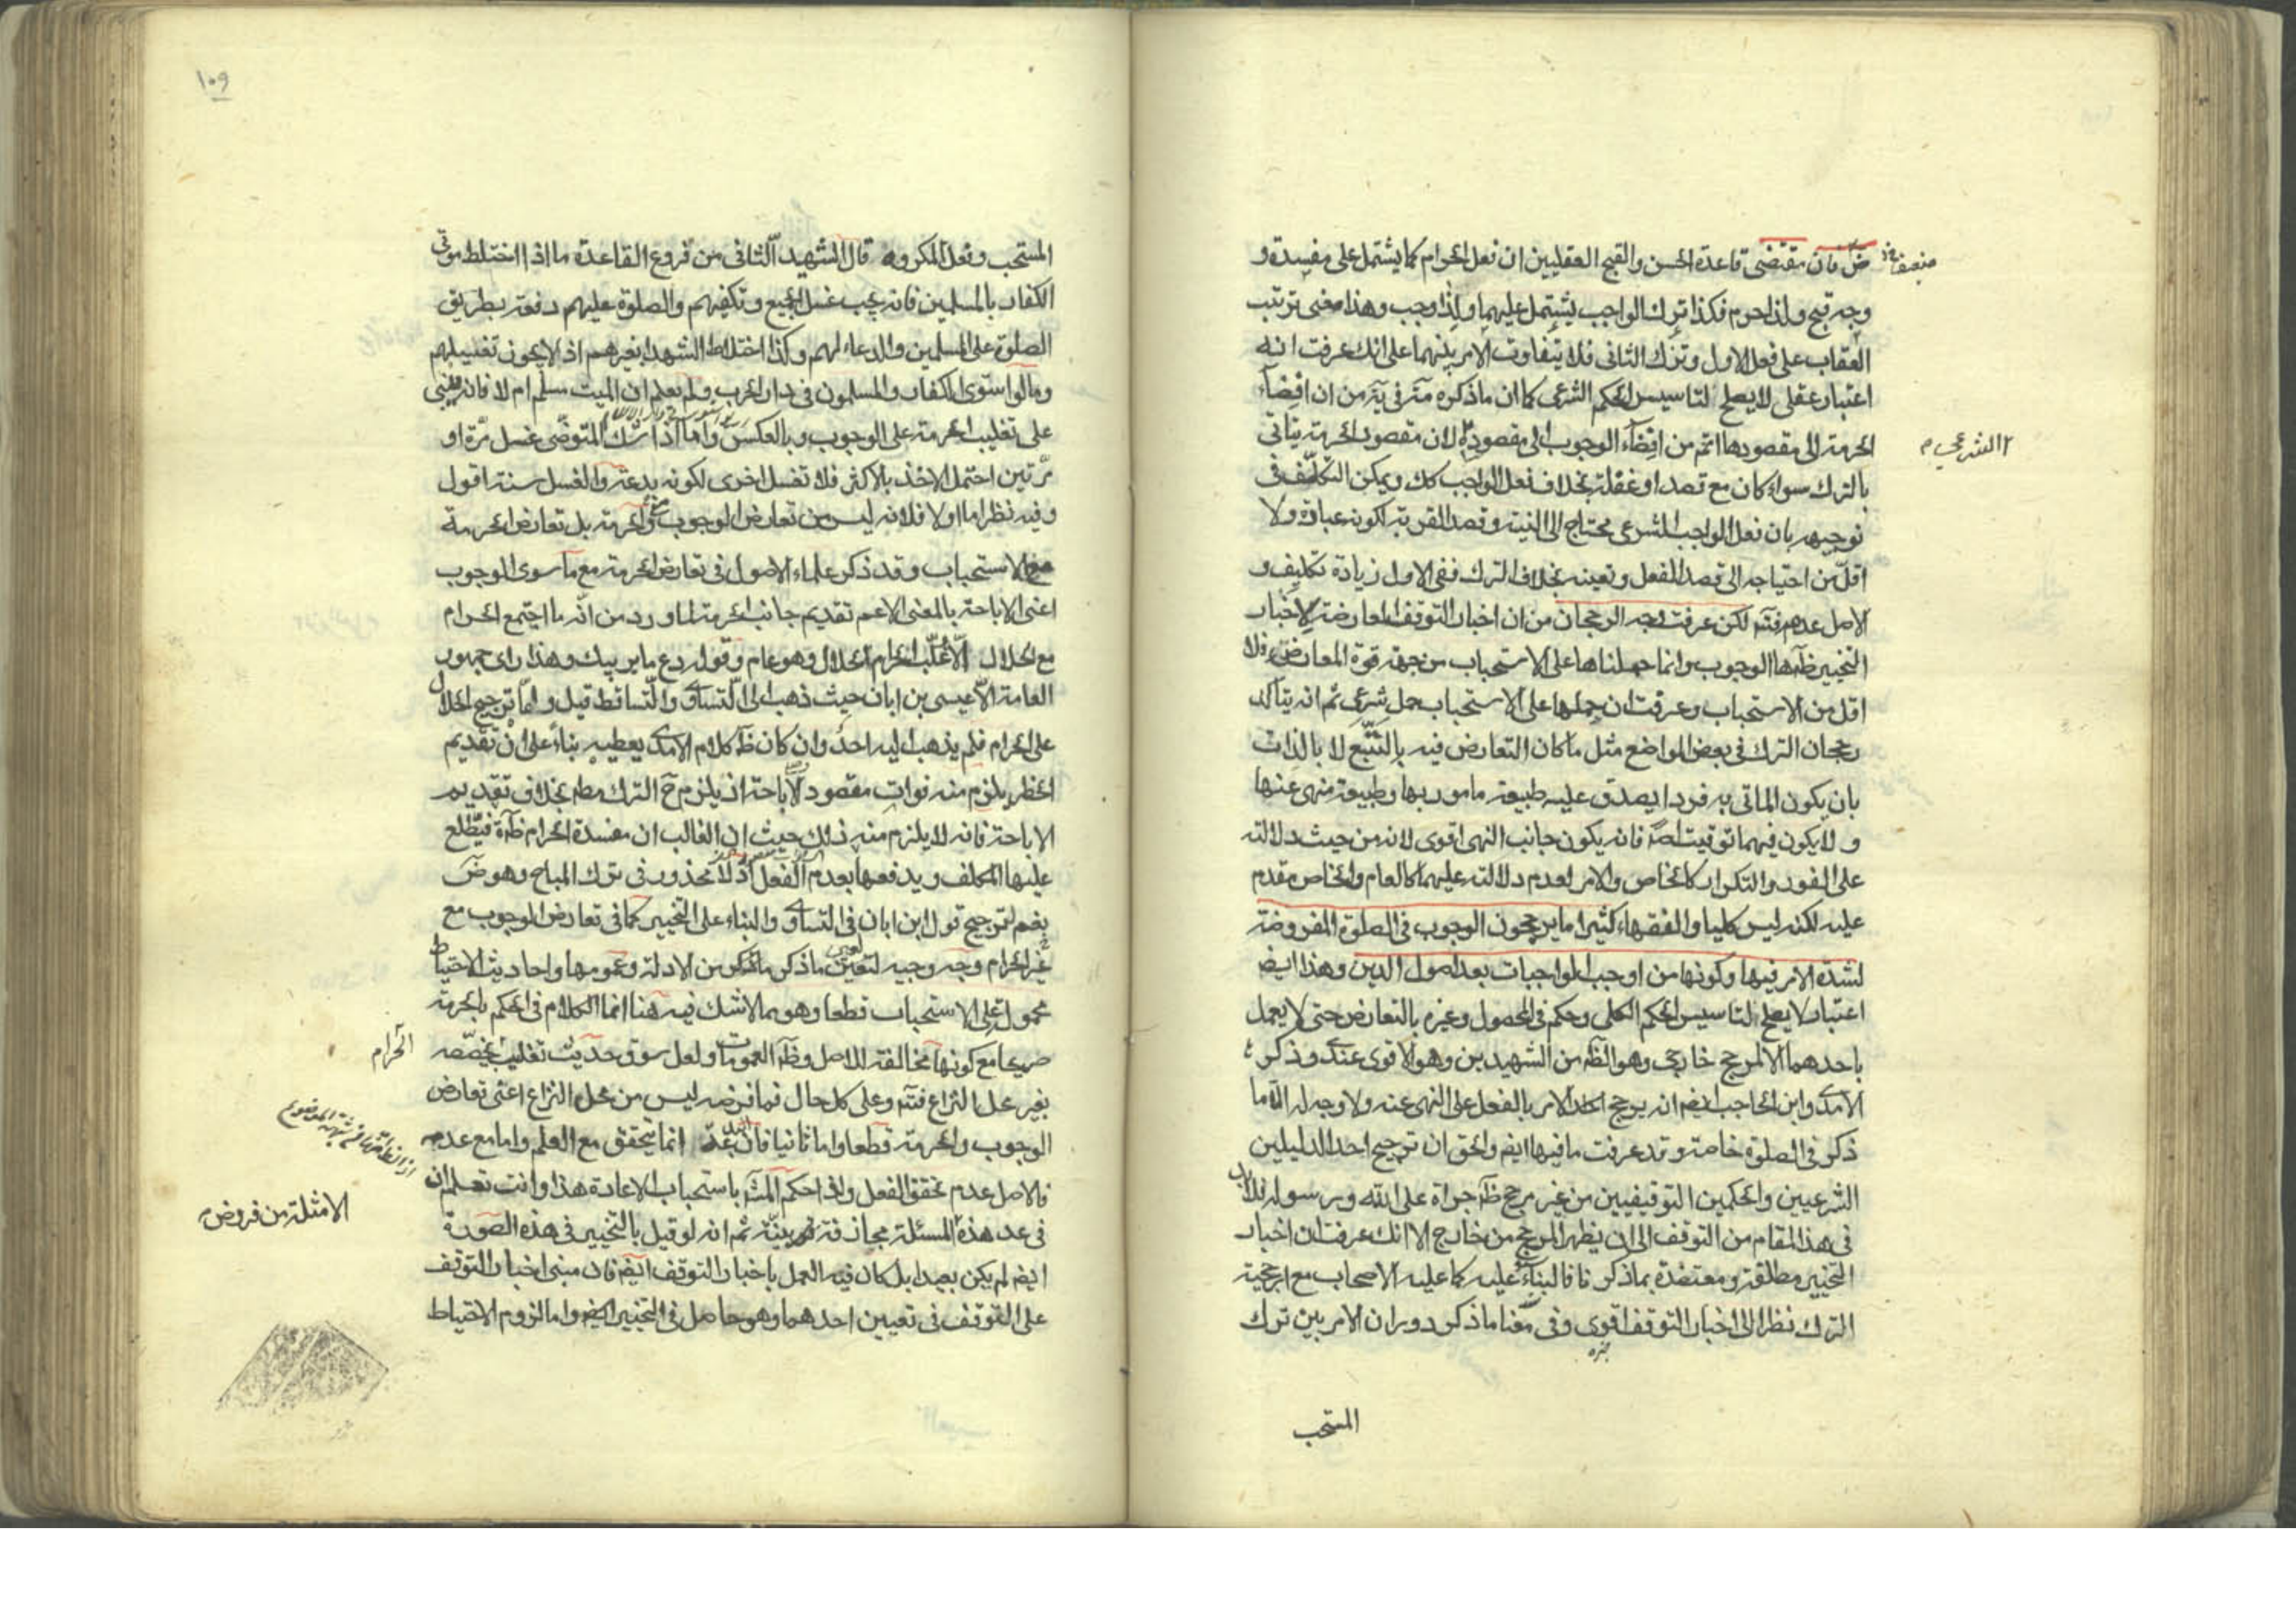 ضعف فان مقتضى قاعدة الحسن والقبح العقليين ان فعل الحرام كما يشتمل على مفسدة و
وجه قبح ولذا حرم فكذا ترك الواجب يشتمل عليهما ولذا وجب وهذا معنى ترتب
العقاب على فعل الاول وترك الثانى فلا يتفاوت الامر بينهما على انك عرفت انه
اعتبار عقلى لا يصلح لتاسيس الحكم الشرعى كما ان ما ذكره من ان افضآء
الحرمة الى مقصودها اتم من افضآء الوجوب الى مقصوده لان مقصود الحرمة يتاتى
بالترك سواء كان مع قصد او غفلة بخلاف فعل الواجب كك ويمكن التكلف فى
توجيهه بان فعل الواجب الشرعى محتاج الى النية وقصد القربة لكونه عبادة ولا
اقل من احتياجه الى قصد الفعل وتعينه بخلاف الترك ففى الاول زيادة تكليف و
الاصل عدمه فتم لكن عرفت وجه الرجحان من ان اخبار التوقف المعارضة لاخبار
التخيير ظاهرها الوجوب وانما حملناها على الاستحباب من جهة قوة المعارض فلا
اقل من الاستحباب وعرفت ان حملها على الاستحباب حمل شرعى ثم انه يتأكد
رجحان الترك فى بعض المواضع مثل ما كان التعارض فيه بالتبع لا بالذات
بان يكون الماتى به فردا يصدق عليه طبيعة مامور بها وطبيعة منهى عنها
ولا يكون فيهما توقيت اصلا فانه يكون جانب النهى اقوى لانه من حيث دلالته
على الفور والتكرار كالخاص والامر لعدم دلالته عليهما كالعام والخاص مقدم
عليه لكنه ليس كليا والفقهاء كثيرا ما يرجحون الوجوب فى الصلوة المفروضة
لشدة الامر فيها وكونها من اوجب الواجبات بعد اصول الدين وهذا ايض
اعتبار لا يصلح لتاسيس الحكم الكلى وحكم فى المحصول وغيره بالتعارض حتى لا يعمل
باحدهما الا لمرجح خارجى وهو الظه من الشهيدين وهو الاقوى عندى وذكر
الآمدى وابن الحاجب ايض انه يرجح الامر بالفعل على النهى عنه ولا وجه له الا ما
ذكر فى الصلوة خاصة وقد عرفت ما فيها ايض والحق ان ترجيح احد الدليلين
الشرعيين والحكمين التوقيفيين من غير مرجح ظه جراة على الله ورسوله فلا بد
فى هذا المقام من التوقف الى ان يظهر المرجح من خارج الا انك عرفت ان اخبار
التخيير مطلقة ومعتضدة بما ذكرنا فالبناء عليه كما عليه الاصحاب مع ارجحية
الترك نظرا الى اخبار التوقف اقوى وفى معنا ما ذكر دوران الامر بين ترك
المستحب
الشرعى م
١٠٩
المستحب وفعل المكروه قال الشهيد الثانى من فروع القاعدة ما اذا اختلط موتى
الكفار بالمسلمين فانه يجب غسل الجميع وتكفينهم والصلوة عليهم دفعة بطريق
الصلوة على المسلمين والدعاء لهم وكذا اختلاط الشهداء بغيرهم اذ لا يجوز تغسيلهم
وما لو استوى الكفار والمسلمون فى دار الحرب ولم يعلم ان الميت مسلم ام لا فانه يبنى
على تغليب الحرمة على الوجوب وبالعكس واما اذا شك المتوضى غسل مرة او
مرتين احتمل الاخذ بالاكثر فلا تغسل اخرى لكونه بدعة والغسل سنة اقول
وفيه نظر اما اولا فلانه ليس من تعارض الوجوب والحرمة بل تعارض الحرمة
مع الاستحباب وقد ذكر علماء الاصول فى تعارض الحرمة مع ما سوى الوجوب
اعنى الاباحة بالمعنى الاعم تقديم جانب الحرمة لما ورد من انه ما اجتمع الحرام
مع الحلال الا غلب الحرام الحلال وهو عام وقوله دع ما يريبك وهذا راى جمهور
العامة الا عيسى بن ابان حيث ذهب الى التساوى والتساقط قيل واما ترجيح الحلال
على الحرام فلم يذهب اليه احد وان كان ظه كلام الآمدى يعطيه بناء على ان تقديم
الحظر يلزم منه فوات مقصود الاباحة اذ يلزم ح الترك مطم بخلاف تقديم
الاباحة فانه لا يلزم منه ذلك حيث ان الغالب ان مفسدة الحرام ظاهرة فيطلع
عليها المكلف ويدفعها بعدم الفعل اذ لا محذور فى ترك المباح وهو ض
نعم لترجيح قول ابن ابان فى التساوى والبناء على التخيير كما فى تعارض الوجوب مع
غير الحرام وجه وجيه ما ذكر من الادلة وعمومها واحاديث الاحتياط
محمولة على الاستحباب قطعا وهو مما لا شك فيه هنا انما الكلام فى الحكم بالحرمة
صريحا مع كونها مخالفة للاصل وظه العمومات ولعل سوق حديث تغليب يخصصه
الحرام
بغير محل النزاع فتم وعلى كل حال فما فرضه ليس من محل النزاع اعنى تعارض
الوجوب والحرمة قطعا واما ثانيا فان انما يتحقق مع العلم واما مع عدمه
فالاصل عدم تحقق الفعل ولذا حكم باستحباب الاعادة هذا وانت تعلم ان
فى عد هذه المسئلة مجازفة ثم انه لو قيل بالتخيير فى هذه الصورة
الامثلة من فروض
ايض لم يكن بعيدا بل كان فيه العمل باخبار التوقف ايض فان مبنى اخبار التوقف
على التوقف فى تعيين احدهما وهو حاصل فى التخيير ايض واما لزوم الاحتياط